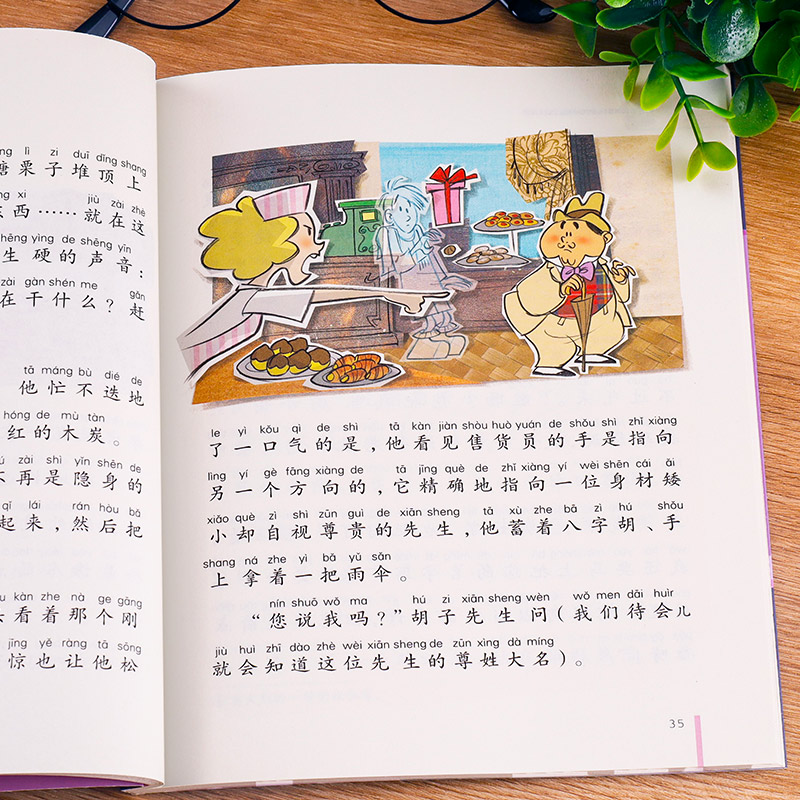 ng lì zi duī dǐng shang
糖栗子堆顶上
ng xi jiù zài zhè
东西……就在这
shēng yìng de shēng yīn
生硬的声音：
zài gàn shén me gǎn
在干什么？赶
tā máng bù dié de
他忙不迭地
hóng de mù tàn
红的木炭。
zài shì yǐn shēn de
不再是隐身的
qǐ lái rán hòu bǎ
起来，然后把
kàn zhe nà ge gāng
看着那个刚
jīng yě ràng tā sōng
惊也让他松
le yì kǒu qì de shì tā kàn jiàn shòu huò yuán de shǒu shì zhǐ xiàng
了一口气的是，他看见售货员的手是指向
lìng yí gè fāng xiàng de tā jīng què de zhǐ xiàng yí wèi shēn cái ǎi
另一个方向的，它精确地指向一位身材矮
xiǎo què zì shì zūn guì de xiān sheng tā xù zhe bā zì hú shǒu
小却自视尊贵的先生，他蓄着八字胡、手
shang ná zhe yì bǎ yǔ sǎn
上拿着一把雨伞。
nín shuō wǒ ma hú zi xiān sheng wèn wǒ men dāi huìr
“您说我吗？”胡子先生问（我们待会儿
jiù huì zhī dào zhè wèi xiān sheng de zūn xìng dà míng
就会知道这位先生的尊姓大名）。
35